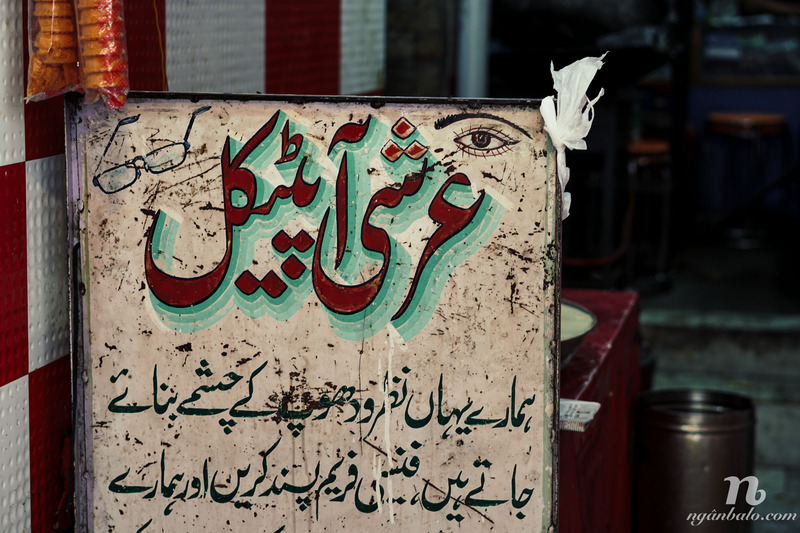 عرشی آپٹیکل
ہمارے یہاں نظر و دھوپ کے چشمے بنائے
جاتے ہیں، فینسی فریم پسند کریں اور ہمارے
n
ngânbalo.com